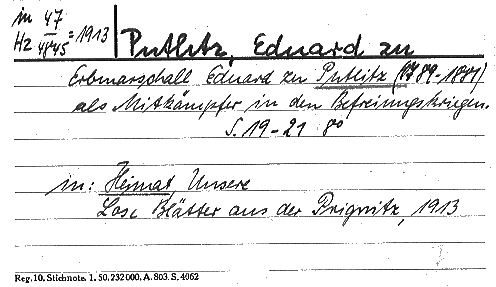 in 47
Hz 4845 = 1913
Putlitz, Eduard zu
Erbmarschall Eduard zu Putlitz (1789-18
als Mitkämpfer in den Befreiungskriegen.
S. 19-21 8°
in: Heimat, Unsere
Lose Blätter aus der Prignitz, 1913
Reg. 10. Stichnote. 1. 50. 232 000. A. 803. S. 4062